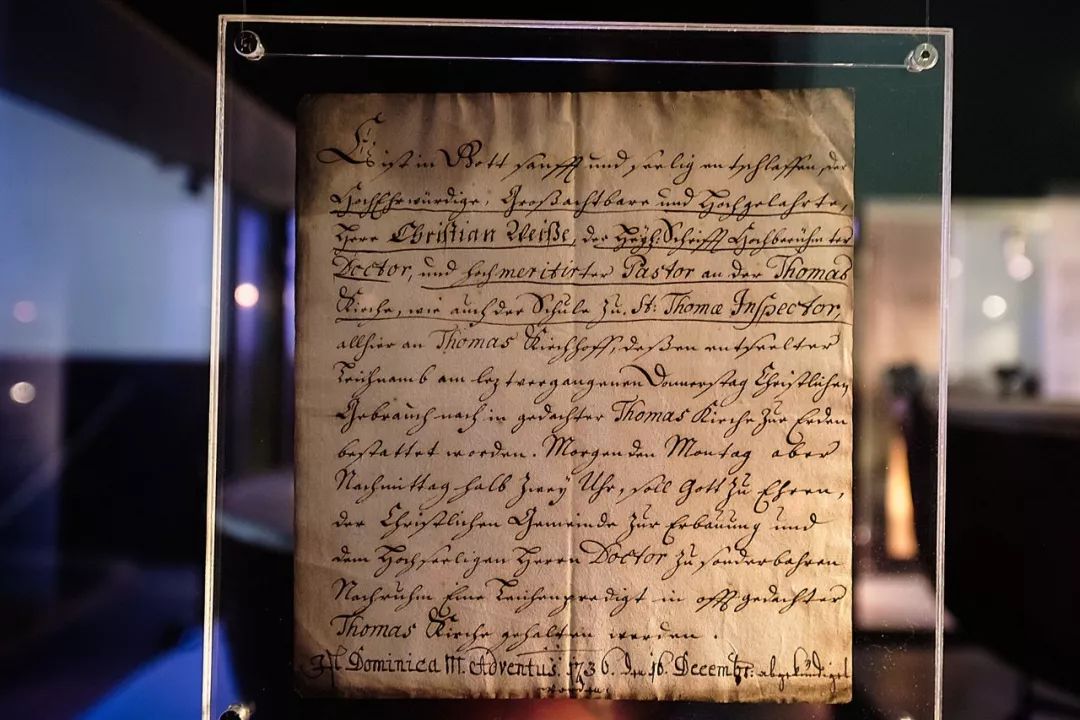 Es ist in Gott sanfft und seelig entschlaffen, der
HochEhrwürdige, Großachtbare und Hochgelahrte,
Herr Christian Weiße, der Heyl: Schrifft Hochberühmter
Doctor, und hochmeritirter Pastor an der Thomas
Kirche, wie auch der Schule zu St: Thomæ Inspector,
allhier an Thomas Kirchhoff, deßen entseelter
Leichnamb am leztvergangenen Donnerstag Christlichen
Gebrauch nach in gedachter Thomas Kirche zur Erden
bestattet worden. Morgen den Montag aber
Nachmittag halb Zwey Uhr, soll Gott zu Ehren,
der Christlichen Gemeinde zur Erbauung und
dem Hochseeligen Herrn Doctor zu sonderbahren
Nachruhm Eine Leichenpredigt in offtgedachter
Thomas Kirche gehalten werden.
Dominica III. Adventus. 1736. den 16 Decembr: abgekündiget
worden.